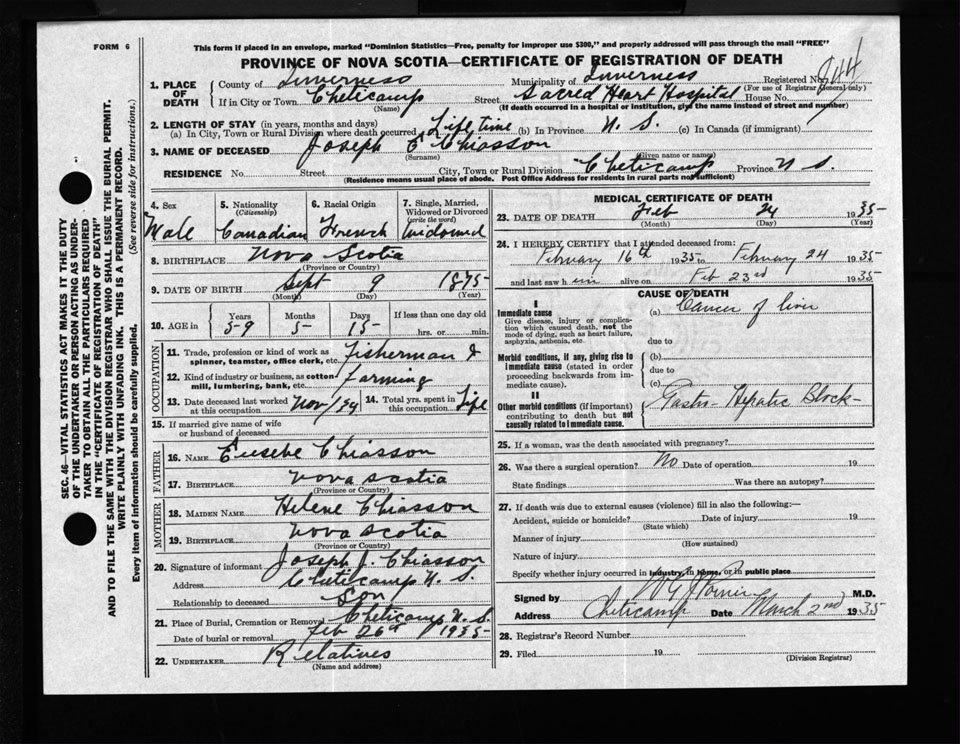 FORM 6
This form if placed in an envelope, marked "Dominion Statistics—Free, penalty for improper use $300," and properly addressed will pass through the mail "FREE"
PROVINCE OF NOVA SCOTIA—CERTIFICATE OF REGISTRATION OF DEATH
1. PLACE OF DEATH
County of Inverness Municipality of Inverness Registered No. 944
(For use of Registrar General only)
If in City or Town Cheticamp Street Sacred Heart Hospital House No.
(Name) (If death occurred in a hospital or institution, give the name instead of street and number)
2. LENGTH OF STAY (in years, months and days)
(a) In City, Town or Rural Division where death occurred Life time (b) In Province N. S. (c) In Canada (if immigrant)
3. NAME OF DECEASED Joseph E Chiasson
(Surname) (Given name or names)
RESIDENCE No. Street City, Town or Rural Division Cheticamp Province N S.
(Residence means usual place of abode. Post Office Address for residents in rural parts not sufficient)
4. Sex 5. Nationality 6. Racial Origin 7. Single, Married,
(Citizenship) Widowed or Divorced
(write the word)
Male Canadian French Widowed
8. BIRTHPLACE Nova Scotia
(Province or Country)
9. DATE OF BIRTH Sept 9 1875
(Month) (Day) (Year)
10. AGE in Years Months Days If less than one day old
59 5 15 hrs. or min.
OCCUPATION
11. Trade, profession or kind of work as spinner, teamster, office clerk, etc. Fisherman &
12. Kind of industry or business, as cotton-mill, lumbering, bank, etc. Farming
13. Date deceased last worked at this occupation Nov/34 14. Total yrs. spent in this occupation Life
15. If married give name of wife or husband of deceased
FATHER
16. NAME Eusebe Chiasson
17. BIRTHPLACE Nova Scotia
(Province or Country)
MOTHER
18. MAIDEN NAME Helene Chiasson
19. BIRTHPLACE Nova Scotia
(Province or Country)
20. Signature of informant Joseph J. Chiasson
Address Cheticamp N. S.
Relationship to deceased Son
21. Place of Burial, Cremation or Removal Cheticamp N. S.
Date of burial or removal Feb 26th 1935
22. UNDERTAKER Relatives
(Name and address)
MEDICAL CERTIFICATE OF DEATH
23. DATE OF DEATH Feb 24 1935
(Month) (Day) (Year)
24. I HEREBY CERTIFY that I attended deceased from:
February 16th 1935 to February 24 1935
and last saw him alive on Feb 23rd 1935
CAUSE OF DEATH
I
Immediate cause (a) Cancer of liver
Give disease, injury or complication which caused death, not the mode of dying, such as heart failure, asphyxia, asthenia, etc.
due to
Morbid conditions, if any, giving rise to immediate cause (stated in order proceeding backwards from immediate cause).
(b)
due to
(c)
II
Other morbid conditions (if important) contributing to death but not causally related to immediate cause.
Gastro-Hepatic Block
25. If a woman, was the death associated with pregnancy?
26. Was there a surgical operation? No Date of operation 19
State findings Was there an autopsy?
27. If death was due to external causes (violence) fill in also the following:—
Accident, suicide or homicide? Date of injury 19
(State which)
Manner of injury
(How sustained)
Nature of injury
Specify whether injury occurred in industry, in home, or in public place
Signed by M.D.
Address Cheticamp Date March 2nd 1935
28. Registrar's Record Number
29. Filed 19
(Division Registrar)
SEC. 46—VITAL STATISTICS ACT MAKES IT THE DUTY
OF THE UNDERTAKER OR PERSON ACTING AS UNDER-
TAKER TO OBTAIN ALL THE PARTICULARS REQUIRED
IN THE "CERTIFICATE OF REGISTRATION OF DEATH"
AND TO FILE THE SAME WITH THE DIVISION REGISTRAR WHO SHALL ISSUE THE BURIAL PERMIT.
WRITE PLAINLY WITH UNFADING INK. THIS IS A PERMANENT RECORD.
Every item of information should be carefully supplied. (See reverse side for instructions.)